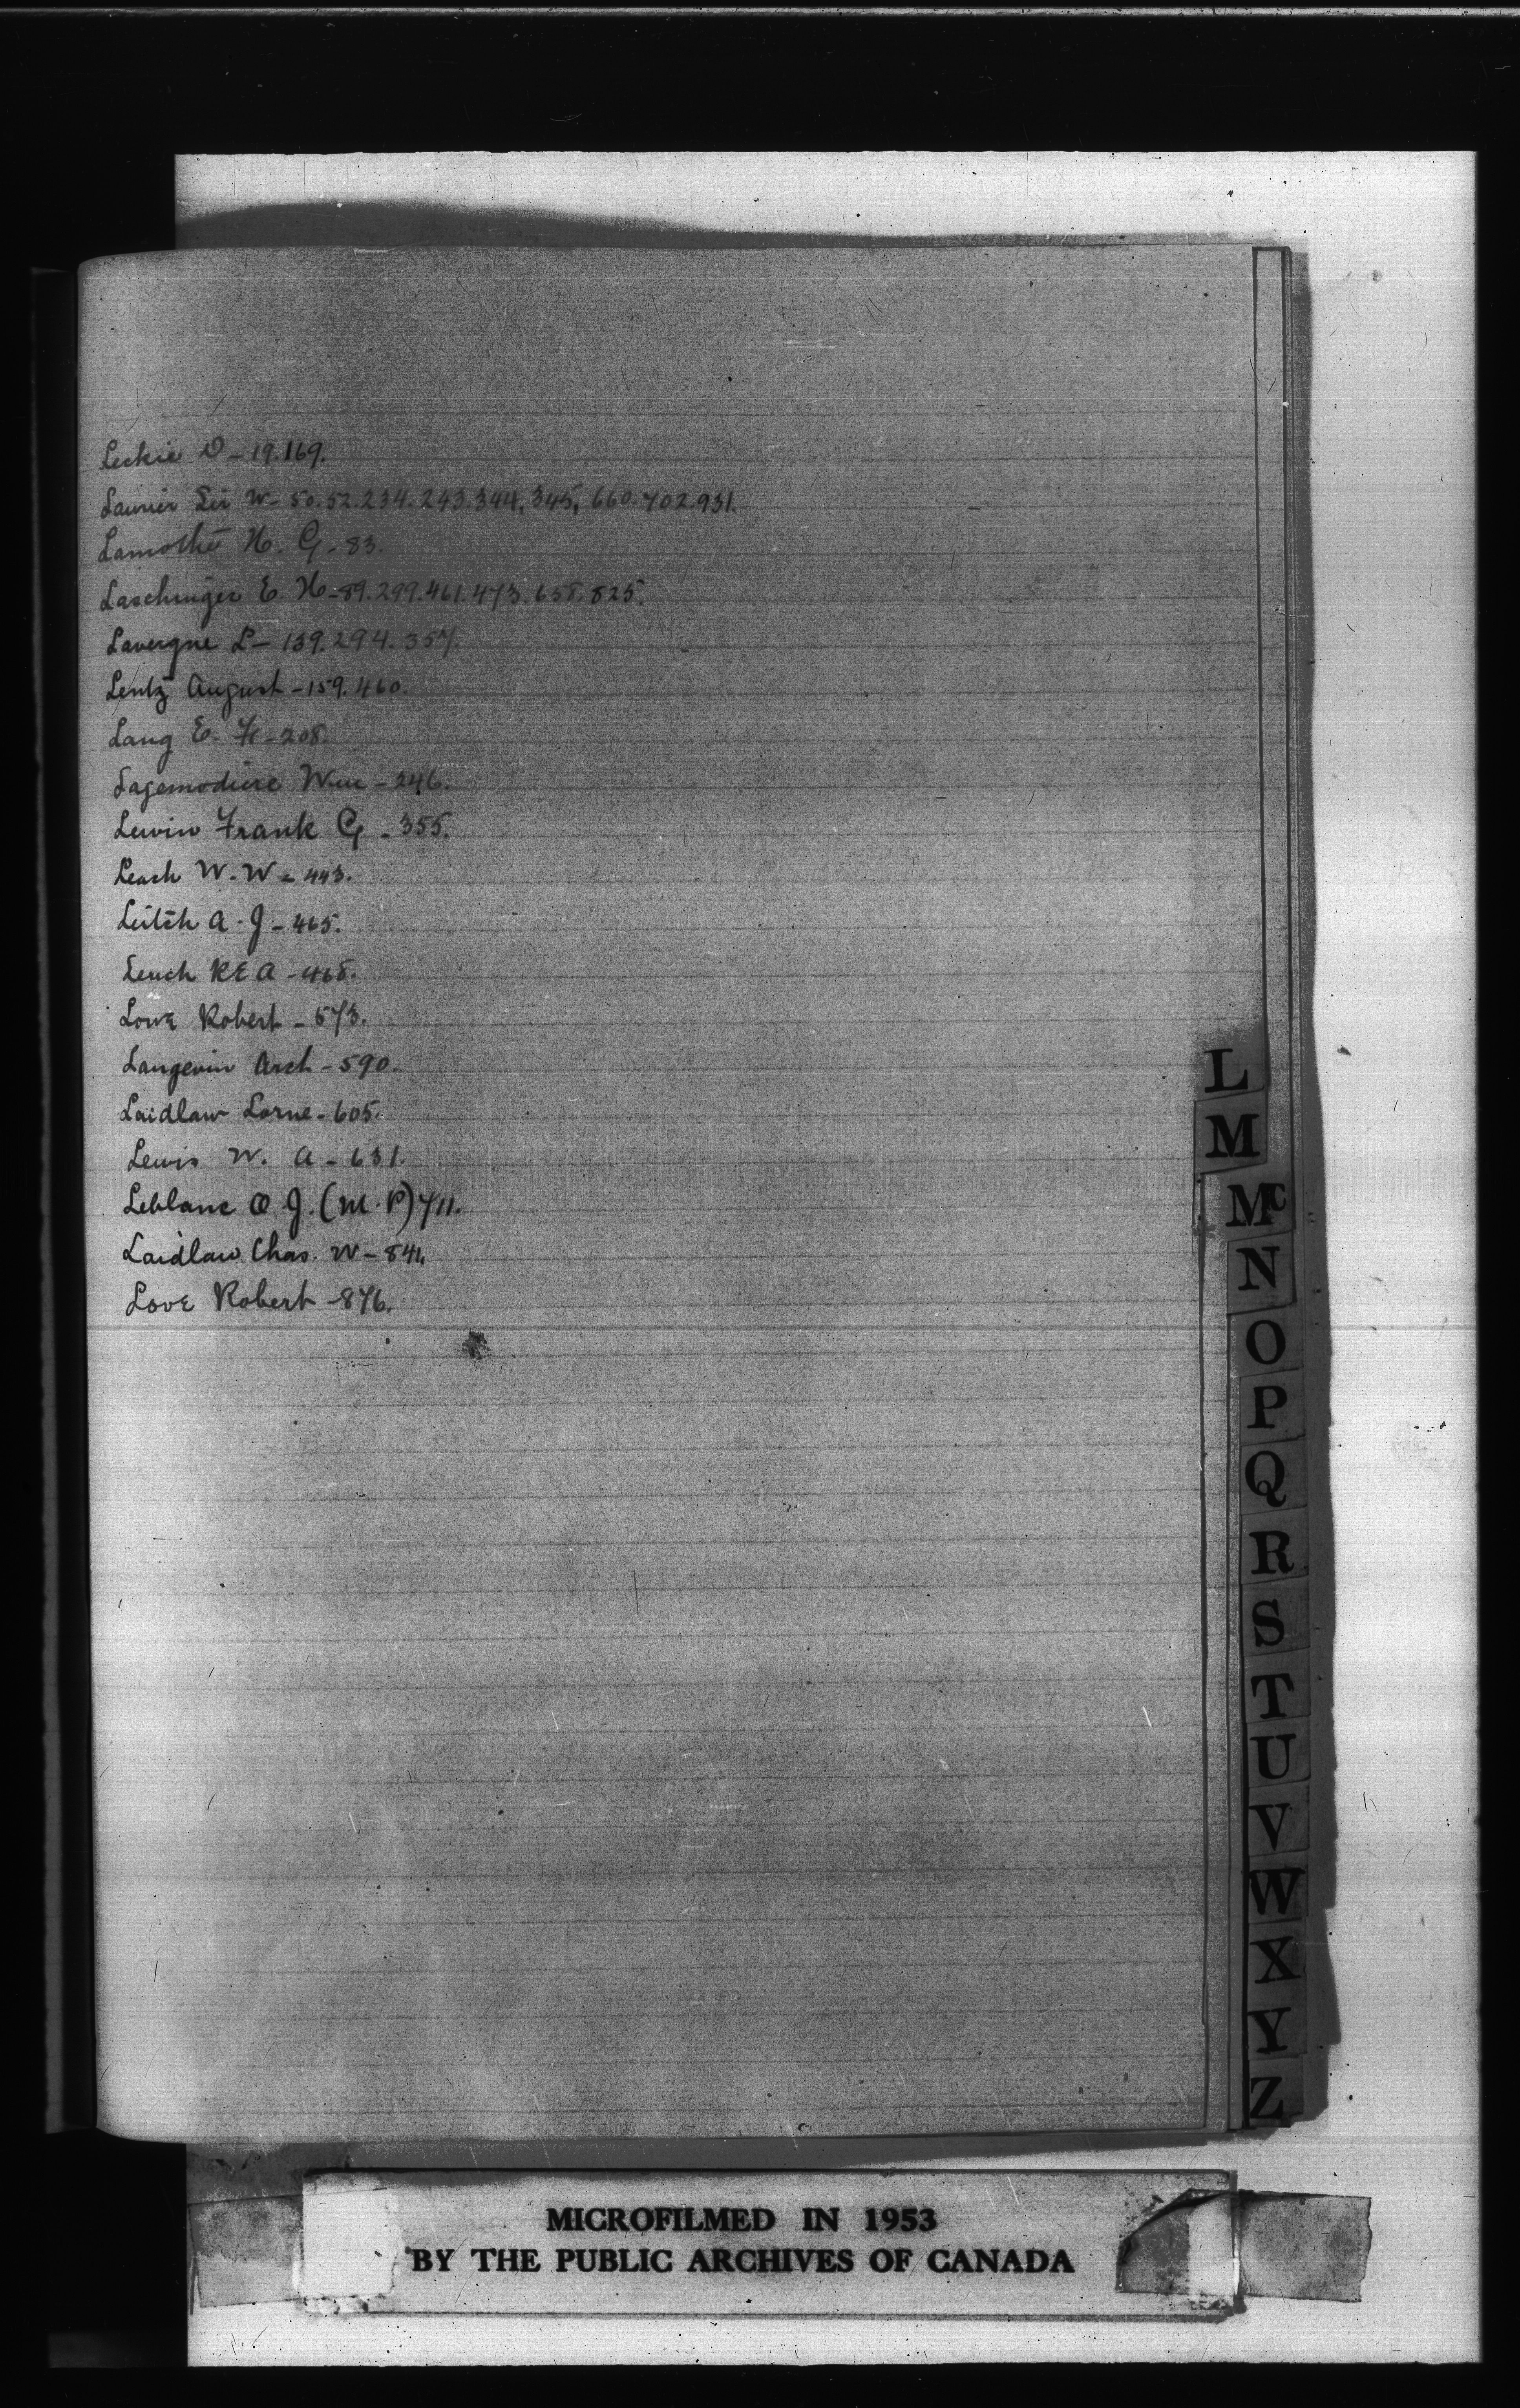 Leckie D - 19. 169.
Laurier Sir W - 50. 52. 234. 243. 344, 345, 660. 702. 931.
Lamothe H. G - 83.
Laschinger E. H - 89. 299. 461. 473. 658. 825.
Lavergne L - 139. 294. 357.
Lentz August - 159. 460.
Lang E. H - 208.
Lagemodiere Wm - 246.
Lewin Frank G - 355.
Leach W. W - 443.
Leitch A. J - 465.
Leach R E A - 468.
Lowe Robert - 573.
Langevin Arch - 590.
Laidlaw Lorne - 605.
Lewis W. A - 631.
Leblanc O J. (M. P) 711.
Laidlaw Chas. W - 841.
Love Robert - 876.
L
M
Mc
N
O
P
Q
R
S
T
U
V
W
X
Y
Z
MICROFILMED IN 1953
BY THE PUBLIC ARCHIVES OF CANADA